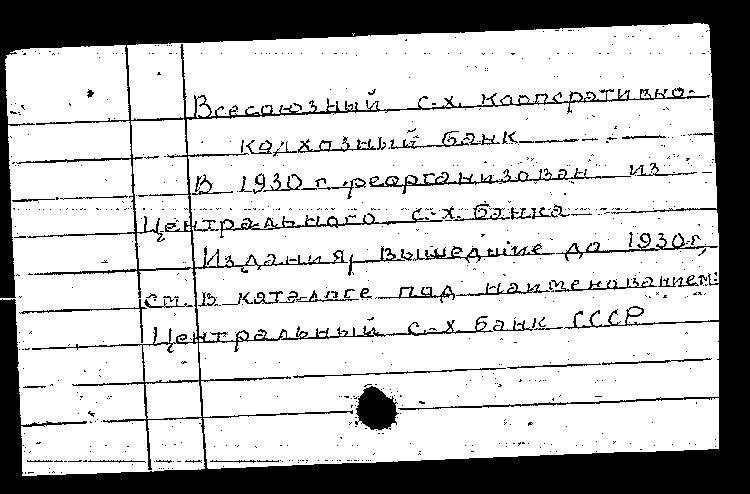 Всесоюзный с.-х. кооперативно-
колхозный банк
В 1930 г. реорганизован из
Центрального с.-х. банка
Издания, вышедшие до 1930 г,
см. в каталоге под наименованием:
Центральный с.-х банк СССР